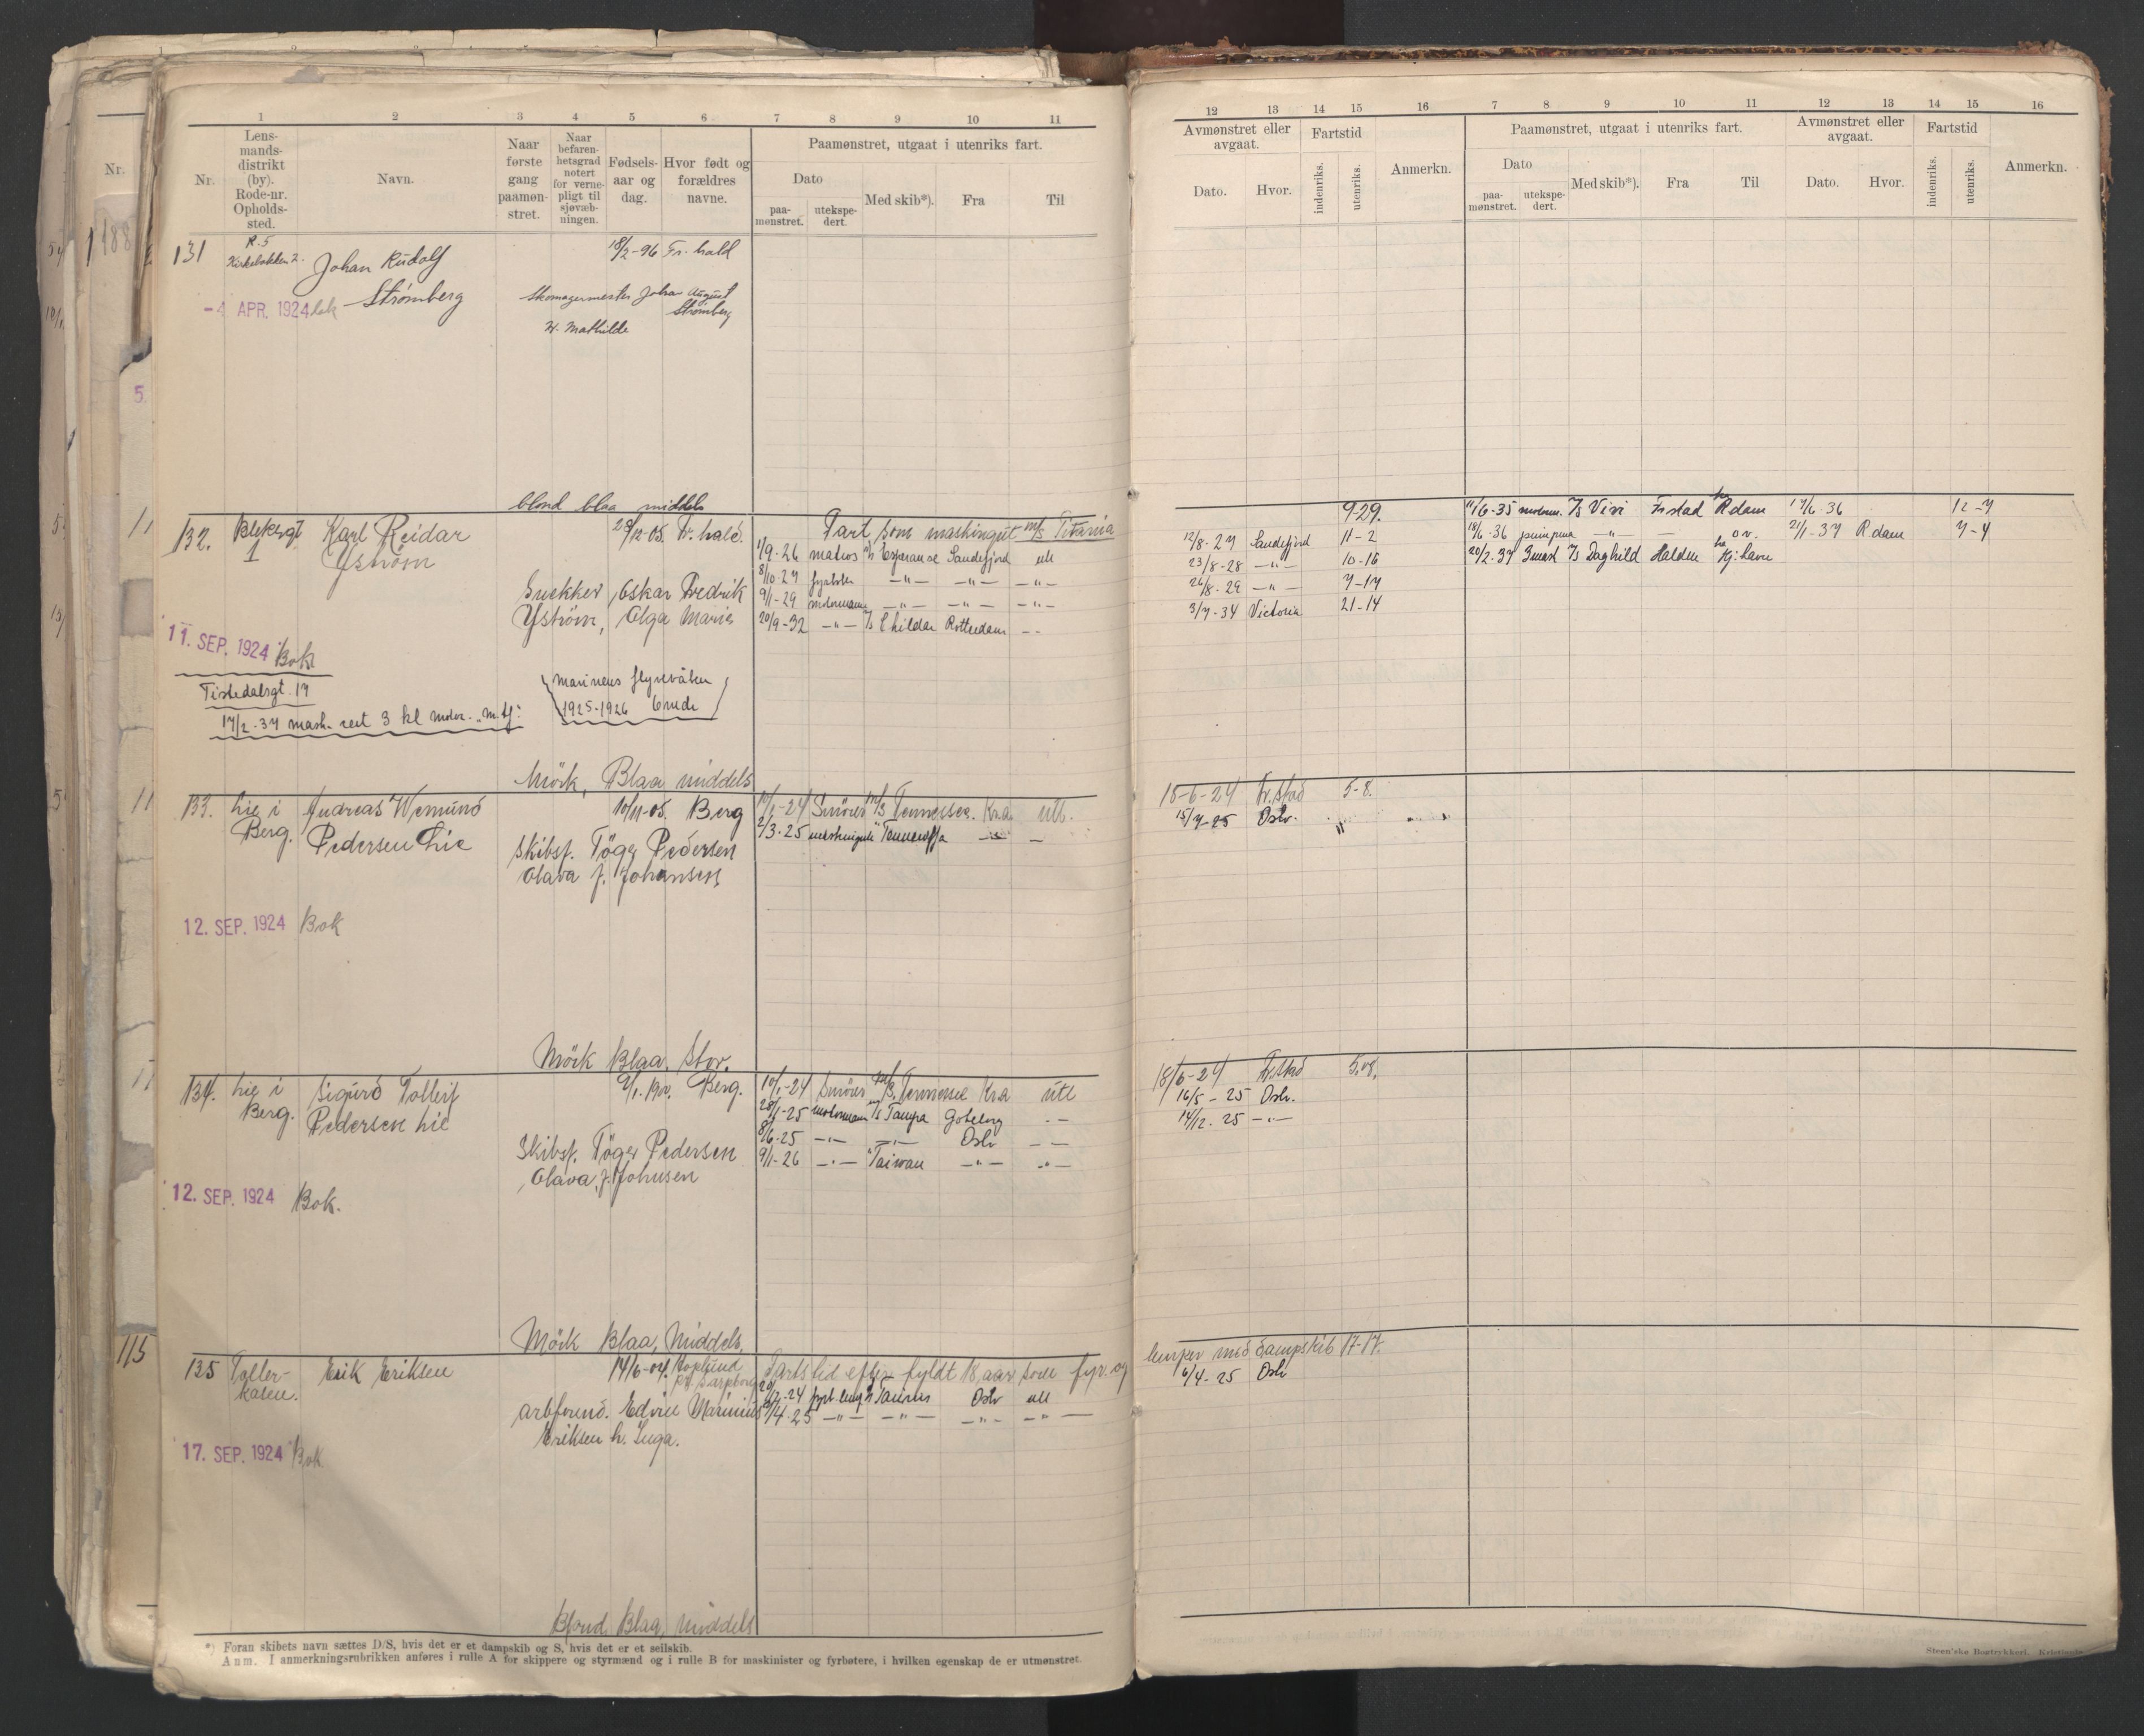 1 2 3 4 5 6 7 8 9 10 11
Nr. Lensmandsdistrikt (by). Rode-nr. Opholdssted. Navn. Naar første gang paamønstret. Naar befarenhetsgrad notert for verneplikt til sjøvæbningen. Fødselsaar og dag. Hvor født og forældres navne. Paamønstret, utgaat i utenriks fart.
Dato paamønstret. utekspedert. Med skib*). Fra Til
131 R. 5 18/2-96 Fr. hald
Kirkebakken 2. Johan Rudolf
Strømberg Skomagermester Johan August
-4 APR. 1924 Strømberg
H. Mathilde
blond blaa middels
132. Blekergt. 1 Karl Reidar 28/12-05. Fr. hald. Fart som maskingut m/s Titania
Yström 1/9-26 matros Esperanse Sandefjord utl
8/10-27 fyrbøter —"— —"— —"—
Snekker, Oskar Fredrik 9/1-29 motormann —"— —"— —"—
Yström, Olga Marie 20/9-32 —"— Childar Rotterdam —
11. SEP. 1924 Bok
Tistedalsgt. 17
Marinens flyvevåben
1925-1926
17/2-37 mask. sert 3 kl motor
Mörk, Blaa, middels
133. Lie i Andreas Wemund 10/11-05. Berg 10/1-24 Smörer m/s Tennessee. Kra. utl.
Berg. Pedersen Lie 2/3-25 maskingut
Skibsf. Töger Pedersen
Olava f. Johansen
12. SEP. 1924 Bok
Mörk Blaa, Stor.
134. Lie i Sigurd Tollerf 2/1.1900. Berg. 10/1-24 Smörer m/s Tennessee Kra utl
Berg. Pedersen Lie 28/1-25 motormann Tampa Goteborg —
8/6-25 —"— —"— Oslo —
Skibsf. Töger Pedersen 9/1-26 —"— Taiwan —"— —"—
Olava, f. Johnsen
12. SEP. 1924 Bok.
Mörk Blaa, Middels,
135 Toller- Erik Eriksen 14/6-04. Fartstid efter fyldt 18 aar som fyr. og
Oslo utl
arbformd. Edvin Marinius 9/4-25 —"— —"— —"— —"—
Eriksen h. Inga.
17. SEP. 1924 Bok
Blond Blaa, Middels
*) Foran skibets navn sættes D/S, hvis det er et dampskib og S, hvis det er et seilskib.
Anm. I anmerkningsrubrikken anføres i rulle A for skippere og styrmænd og i rulle B for maskinister og fyrbøtere, i hvilken egenskap de er utmønstret.
12 13 14 15 16 7 8 9 10 11 12 13 14 15 16
Avmønstret eller avgaat. Fartstid Anmerkn. Paamønstret, utgaat i utenriks fart. Avmønstret eller avgaat. Fartstid Anmerkn.
Dato. Hvor. indenriks. utenriks. Dato paamønstret. utekspedert. Med skib*). Fra Til Dato. Hvor. indenriks. utenriks.
9-29. 11/6-35 Vivi Frstad Rdam 17/6-36 12-7
12/8-27 Sandefjord 11-2 18/6-36 —"— — 21/1-37 Rdam 7-4
23/8-28 —"— 10-16 20/2-37 3mask Daghild Halden Kj.havn
26/8-29 —"— 7-17
3/7-34 Victoria 21-14
18-6-24 Fr.stad 5-8.
15/7-25 Oslo.
18/6-24 Fr.stad 5.08.
16/5-25 Oslo.
14/12-25 —"—
lemper med dampskib 17-17.
6/4-25 Oslo
Steen'ske Bogtrykkeri.